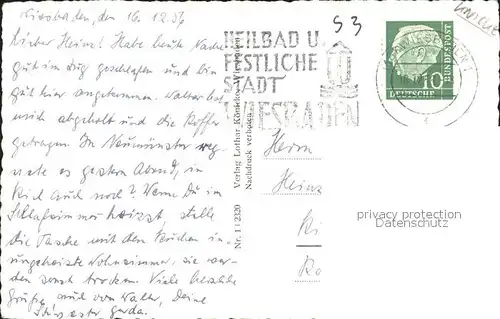 Wiesbaden, den 16. 12. 56
Lieber Heinz! Habe heute Nacht
gut im Zug geschlafen und bin
gut hier angekommen. Walter hat
mich abgeholt und die Koffer
getragen. In Neumünster reg-
nete es gestern Abend, in
Kiel auch noch? Wenn Du im
Schlafzimmer heizst, stelle
die Tasche mit den Kuchen in
ungeheizte Wohnzimmer, sie wer-
den sonst trocken. Viele herzliche
Grüße, auch von Walter, Deine
Schwester Gerda.
Nr. 1 | 2320 Verlag Lothar Königshof, Wiesbaden
Nachdruck verboten
53
HEILBAD U.
FESTLICHE
STADT
WIESBADEN
WIESBADEN
10
DEUTSCHE
BUNDESPOST
Herrn
Heinz
Ki
privacy protection
Datenschutz